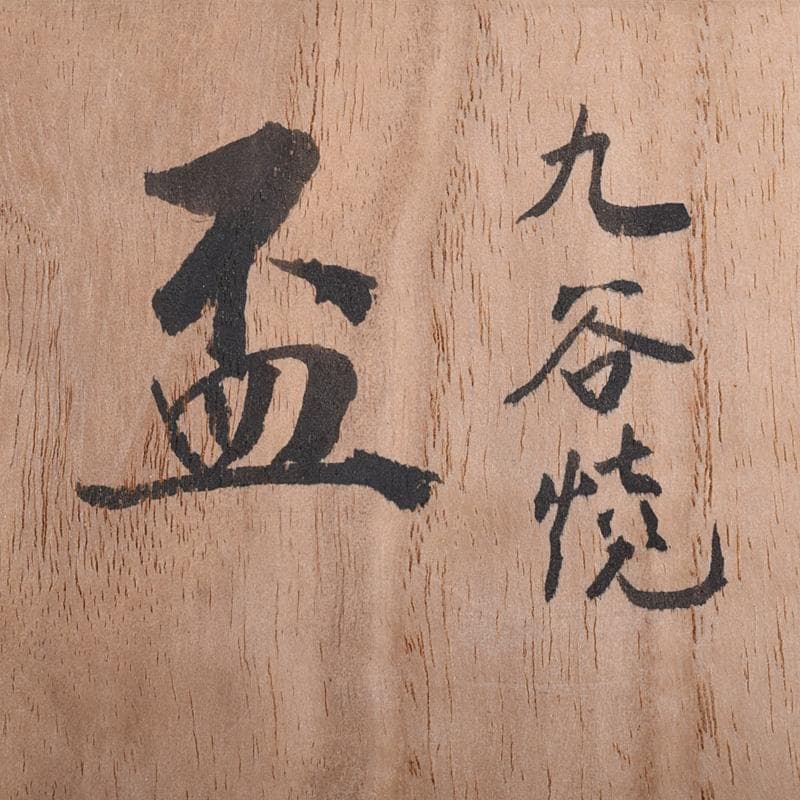 九谷焼
盃